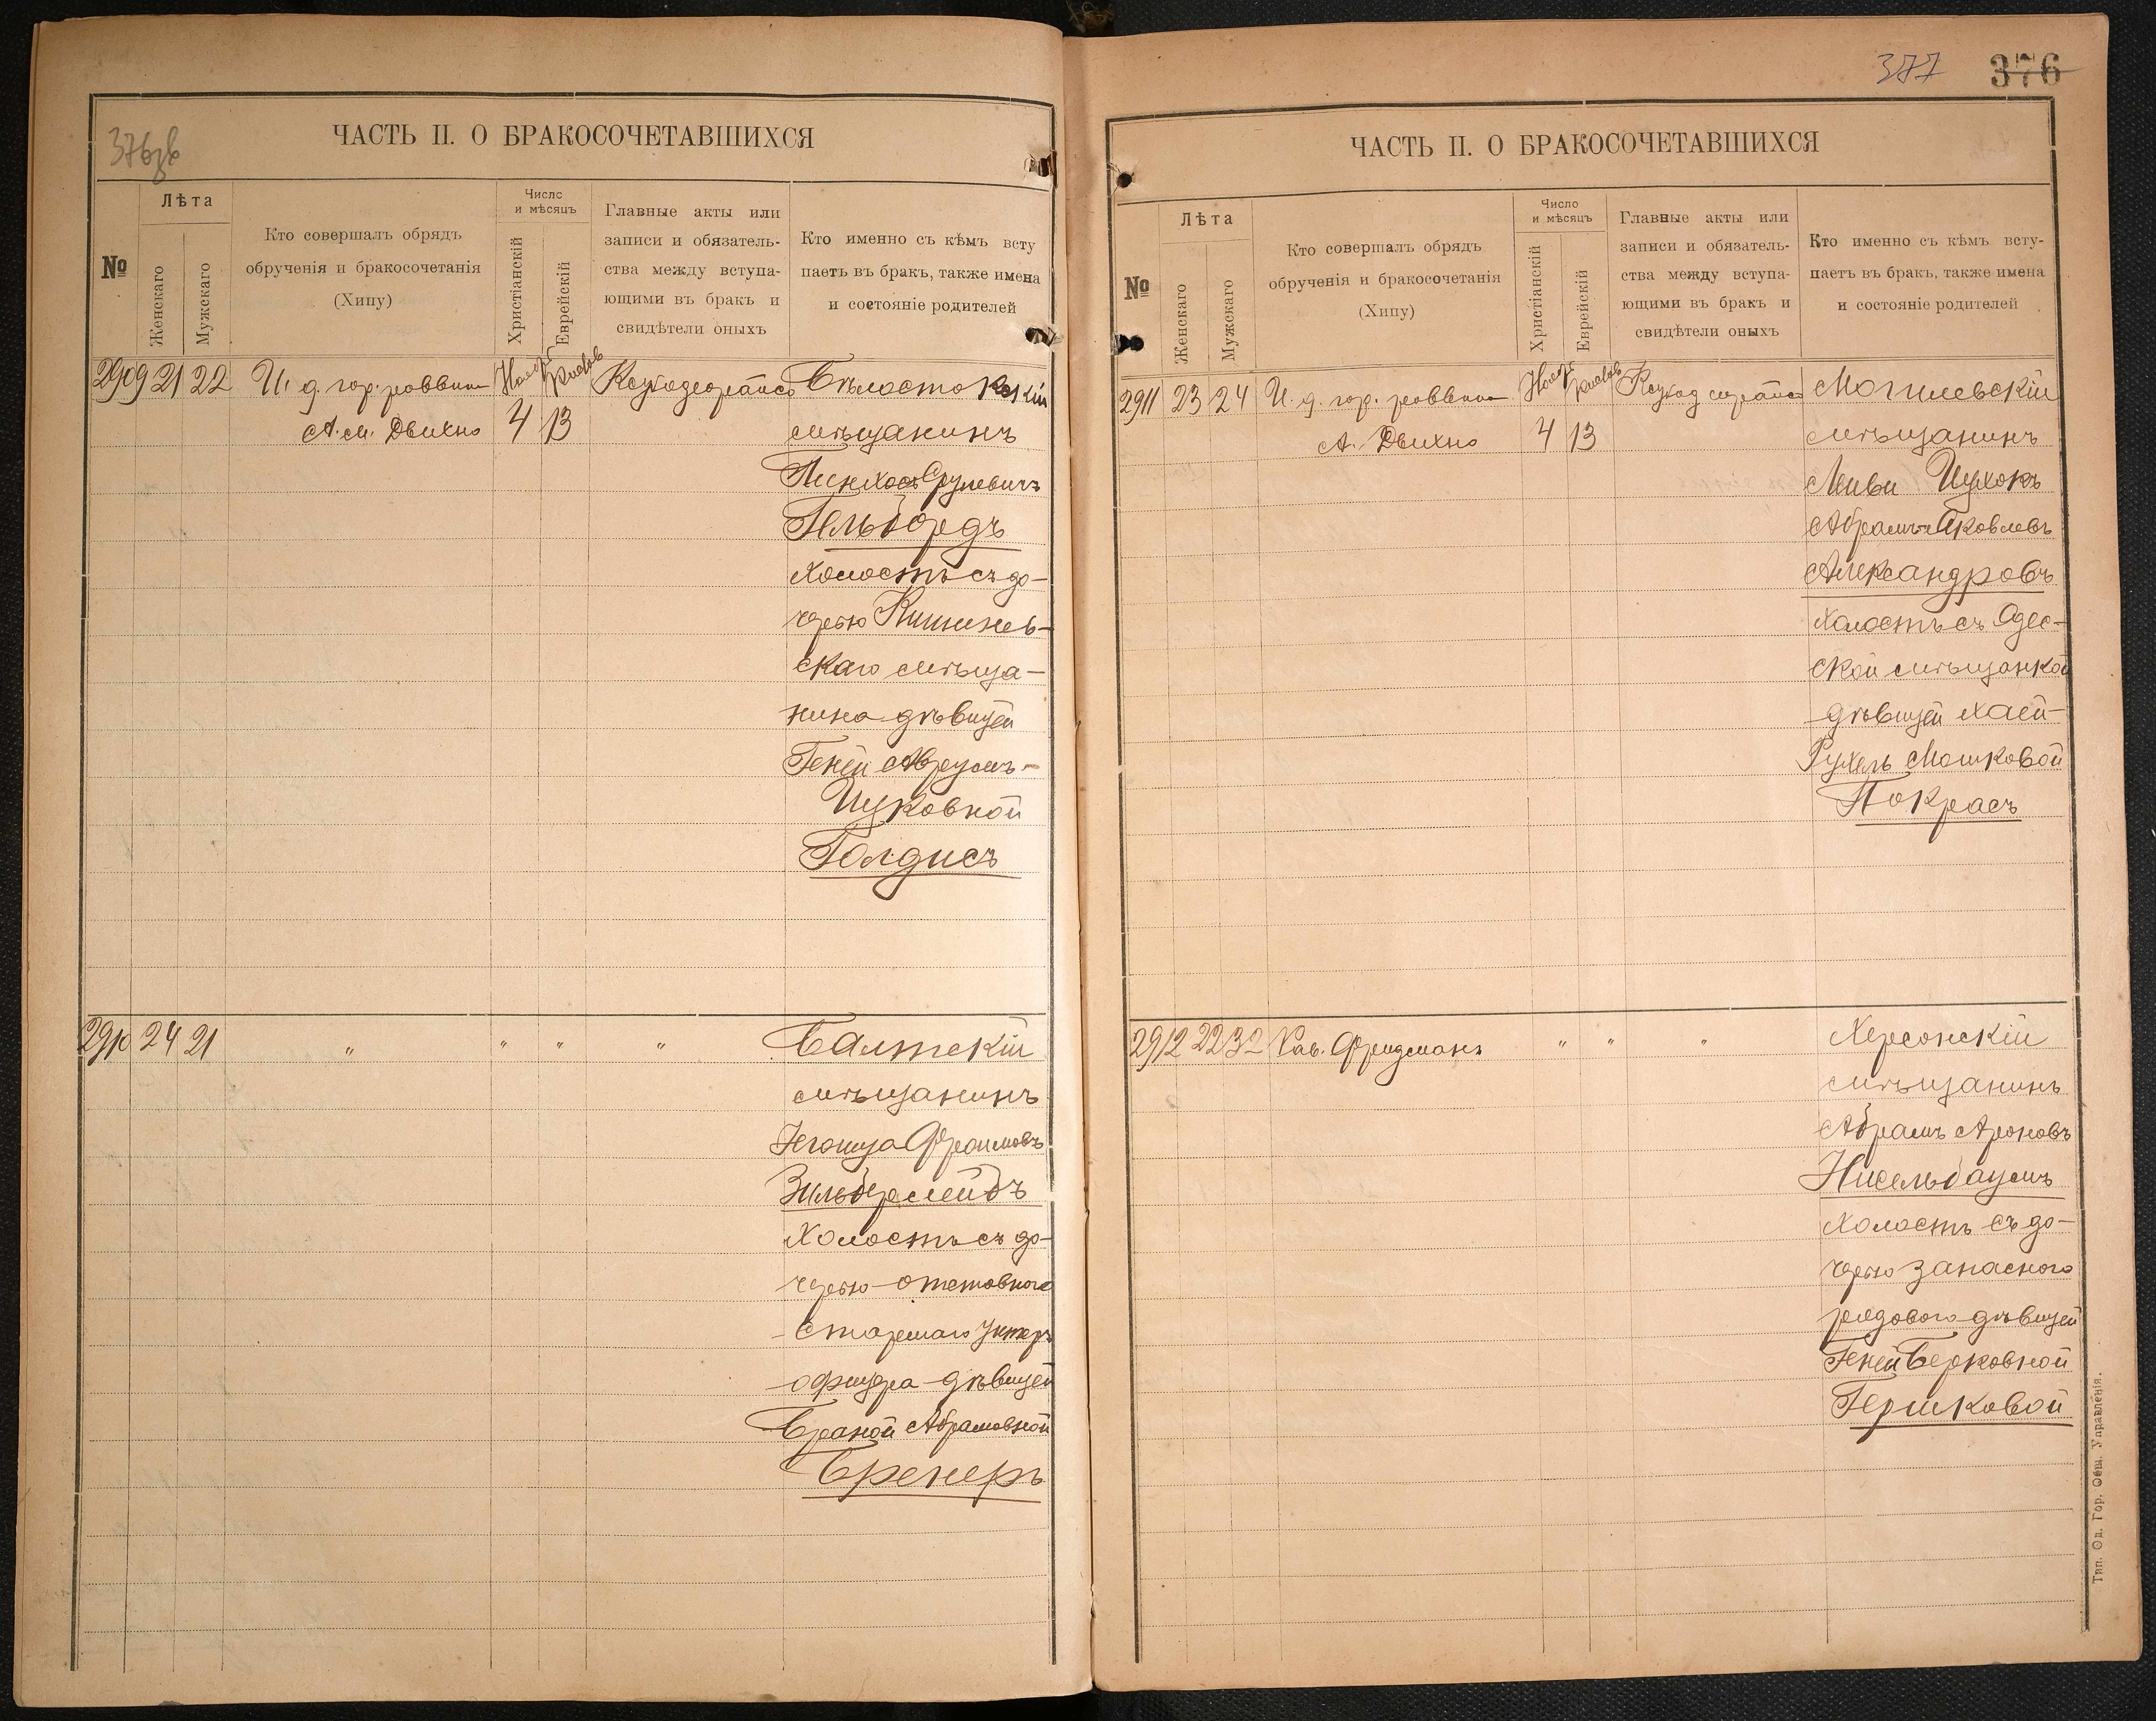 376об
ЧАСТЬ II. О БРАКОСОЧЕТАВШИХСЯ
№
Лѣта
Женскаго
Мужскаго
Кто совершалъ обрядъ
обрученія и бракосочетанія
(Хипу)
Число
и мѣсяцъ
Христіанскій
Еврейскій
Главные акты или
записи и обязатель-
ства между вступа-
ющими въ бракъ и
свидѣтели оныхъ
Кто именно съ кѣмъ всту
паетъ въ бракъ, также имена
и состояніе родителей
2909 21 22 И. д. гор. раввина Бѣлостокскій
А. М. Двихно 4 13 мѣщанинъ
Пинхосъ Срулевичъ
Гельбордъ
холостъ съ до-
черью Кишинев-
скаго мѣща-
нина дѣвицей
Геней Аврумъ-
Ицковной
Голдисъ
2910 24 21 " " " " Балтскій
мѣщанинъ
Іегошуа Фроимовъ
Зильберлейбъ
холостъ съ до-
черью отставного
старшаго унтеръ
офицера дѣвицей
Браной Абрамовной
Бренеръ
377 376
ЧАСТЬ II. О БРАКОСОЧЕТАВШИХСЯ
№
Лѣта
Женскаго
Мужскаго
Кто совершалъ обрядъ
обрученія и бракосочетанія
(Хипу)
Число
и мѣсяцъ
Христіанскій
Еврейскій
Главные акты или
записи и обязатель-
ства между вступа-
ющими въ бракъ и
свидѣтели оныхъ
Кто именно съ кѣмъ всту-
паетъ въ бракъ, также имена
и состояніе родителей
2911 23 24 И. д. гор. раввина Могилевскій
А. Двихно 4 13 мѣщанинъ
Лейви Ицхокъ
Абрамъ-Яковлевъ
Александровъ
холостъ съ Одес-
ской мѣщанкой
дѣвицей Хаей-
Рухель Мошковой
Покрасъ
2912 22 32 Рав. Фридманъ " " " Херсонскій
мѣщанинъ
Абрамъ Ароновъ
Нисельбаумъ
холостъ съ до-
черью запасного
рядового дѣвицей
Геней Берковной
Гершковой
Тип. Од. Гор. Общ. Управленія.